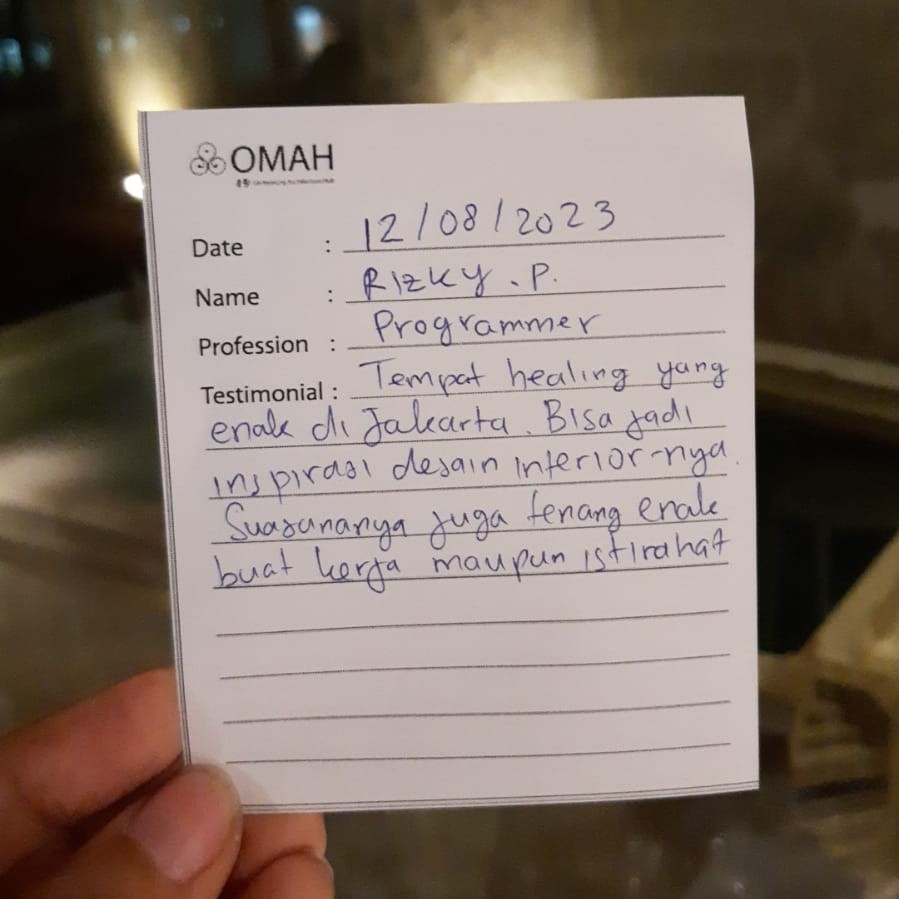 OMAH
Date : 12/08/2023
Name : Rizky . P.
Profession : Programmer
Testimonial : Tempat healing yang
enak di Jakarta. Bisa jadi
inspirasi desain interior-nya.
Suasananya juga tenang enak
buat kerja maupun istirahat